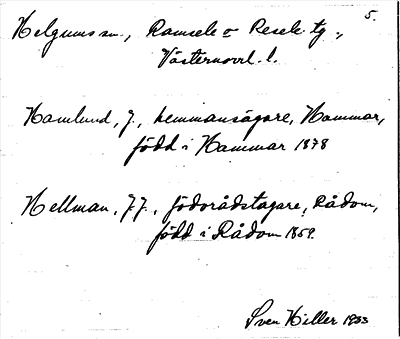 5.
Helgums sn., Ramsele o Resele tg.,
Västernorrl. l.
Hamlund, J., hemmansägare, Hammar,
född i Hammar 1878
Hellman, J.J., födorådstagare, Rådom,
född i Rådom 1859.
Sven Hiller 1933